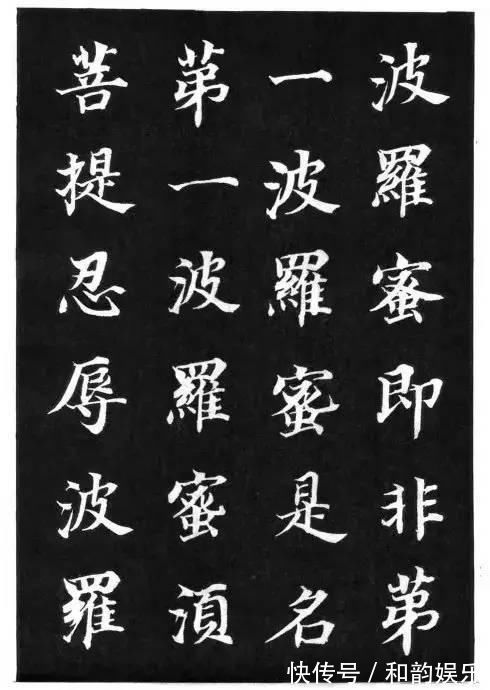 波羅蜜即非苐
一波羅蜜是名
苐一波羅蜜湏
菩提忍辱波羅
快传号/和韵娱乐